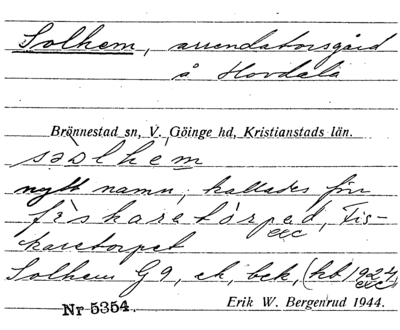 Solhem, arrendatorsgård
å Hovdala
Brönnestad sn, V. Göinge hd, Kristianstads län.
sɔ̀lhem
nytt namn, kallades förr
fìskaretórped, Fis-
karetorpet
Solhem G 9, ek, bek, (hb 1924)
Nr 5354. Erik W. Bergenrud 1944.